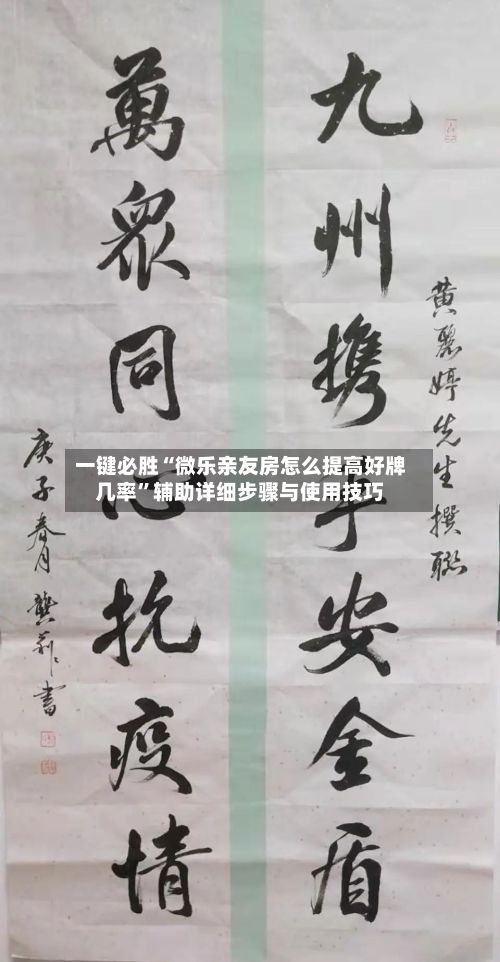 黄麗婷先生撰聯
九州携手安金盾
萬眾同心抗疫情
庚子春月龔書
一键必胜“微乐亲友房怎么提高好牌
几率”辅助详细步骤与使用技巧